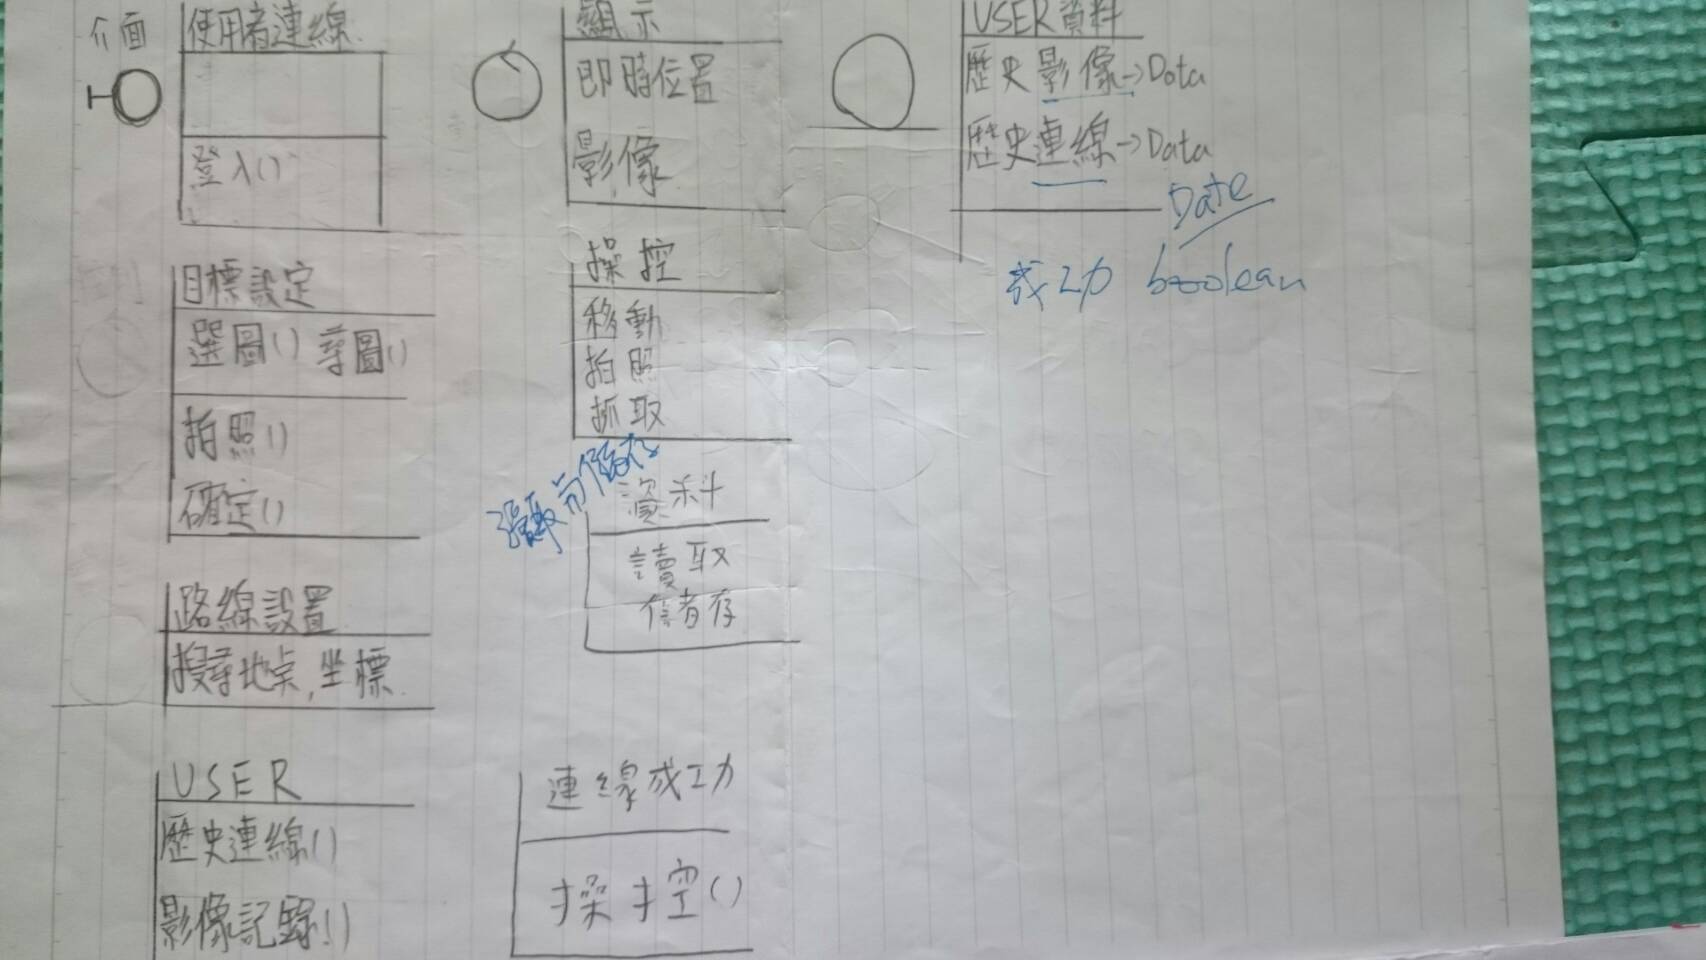 介面
使用者連線
登入()
目標設定
選圖() 尋圖()
拍照()
確定()
路線設置
搜尋地點,坐標
USER
歷史連線()
影像記錄()
顯示
即時位置
影像
操控
移動
拍照
抓取
資料
讀取
儲存
連線成功
操控()
USER資料
歷史影像→Data
歷史連線→Data
Date
成功 boolean